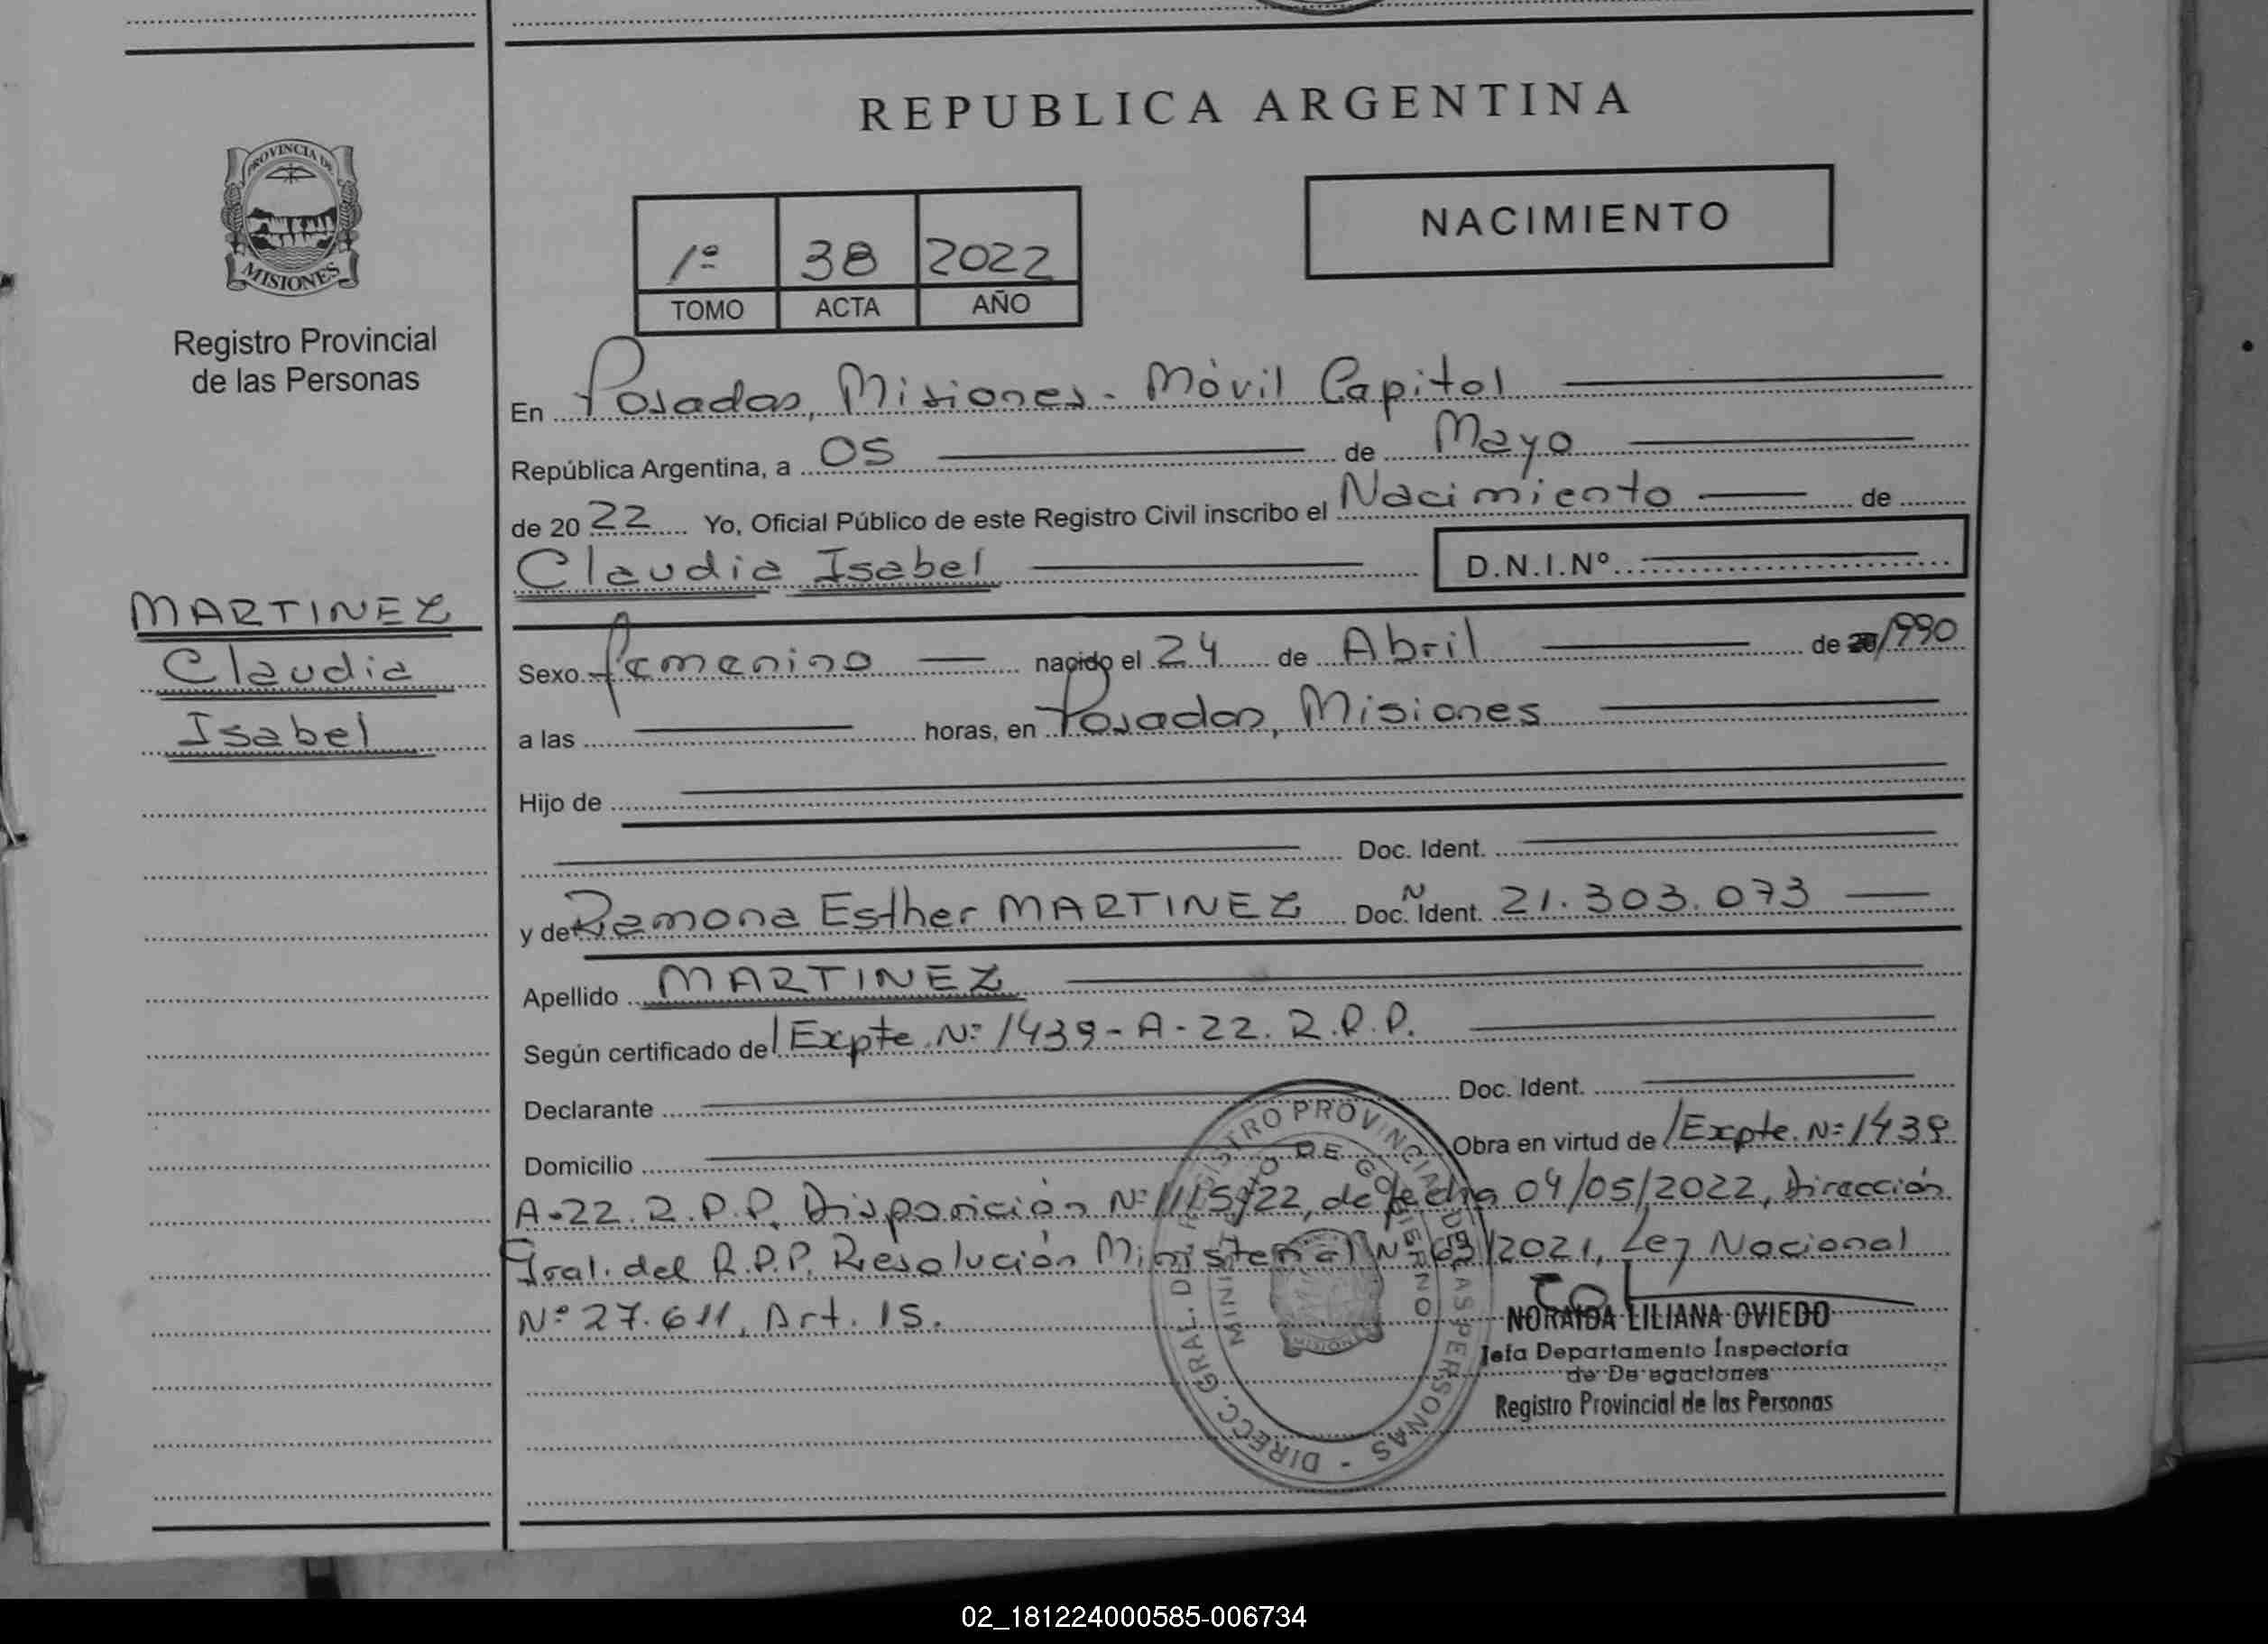 REPUBLICA ARGENTINA
PROVINCIA DE
MISIONES
Registro Provincial
de las Personas
NACIMIENTO
1º 38 2022
TOMO ACTA AÑO
En Posadas, Misiones - Móvil Capital
República Argentina, a 05 de Mayo
de 2022 Yo, Oficial Público de este Registro Civil inscribo el Nacimiento de
Claudia Isabel D.N.I.Nº
MARTINEZ
Claudia
Isabel
Sexo femenino nacido el 24 de Abril de 1990
a las horas, en Posadas, Misiones
Hijo de
Doc. Ident.
y de Ramona Esther MARTINEZ Doc. Ident. Nº 21.303.073
Apellido MARTINEZ
Según certificado de/Expte. Nº 1439-A-22. R.P.P.
Declarante Doc. Ident.
Domicilio Obra en virtud de /Expte. Nº 1439
A-22. R.P.P. Disposición Nº 1115/22, de fecha 04/05/2022, Dirección
Gral. del R.P.P. Resolución Ministerial Nº 63/2021, Ley Nacional
Nº 27.611, Art. 15.
DIRECC. GRAL. DEL REGISTRO PROVINCIAL DE LAS PERSONAS -
MINISTERIO DE GOBIERNO
MISIONES
NORAIDA LILIANA OVIEDO
Jefa Departamento Inspectoría
de Delegaciones
Registro Provincial de las Personas
02_181224000585-006734